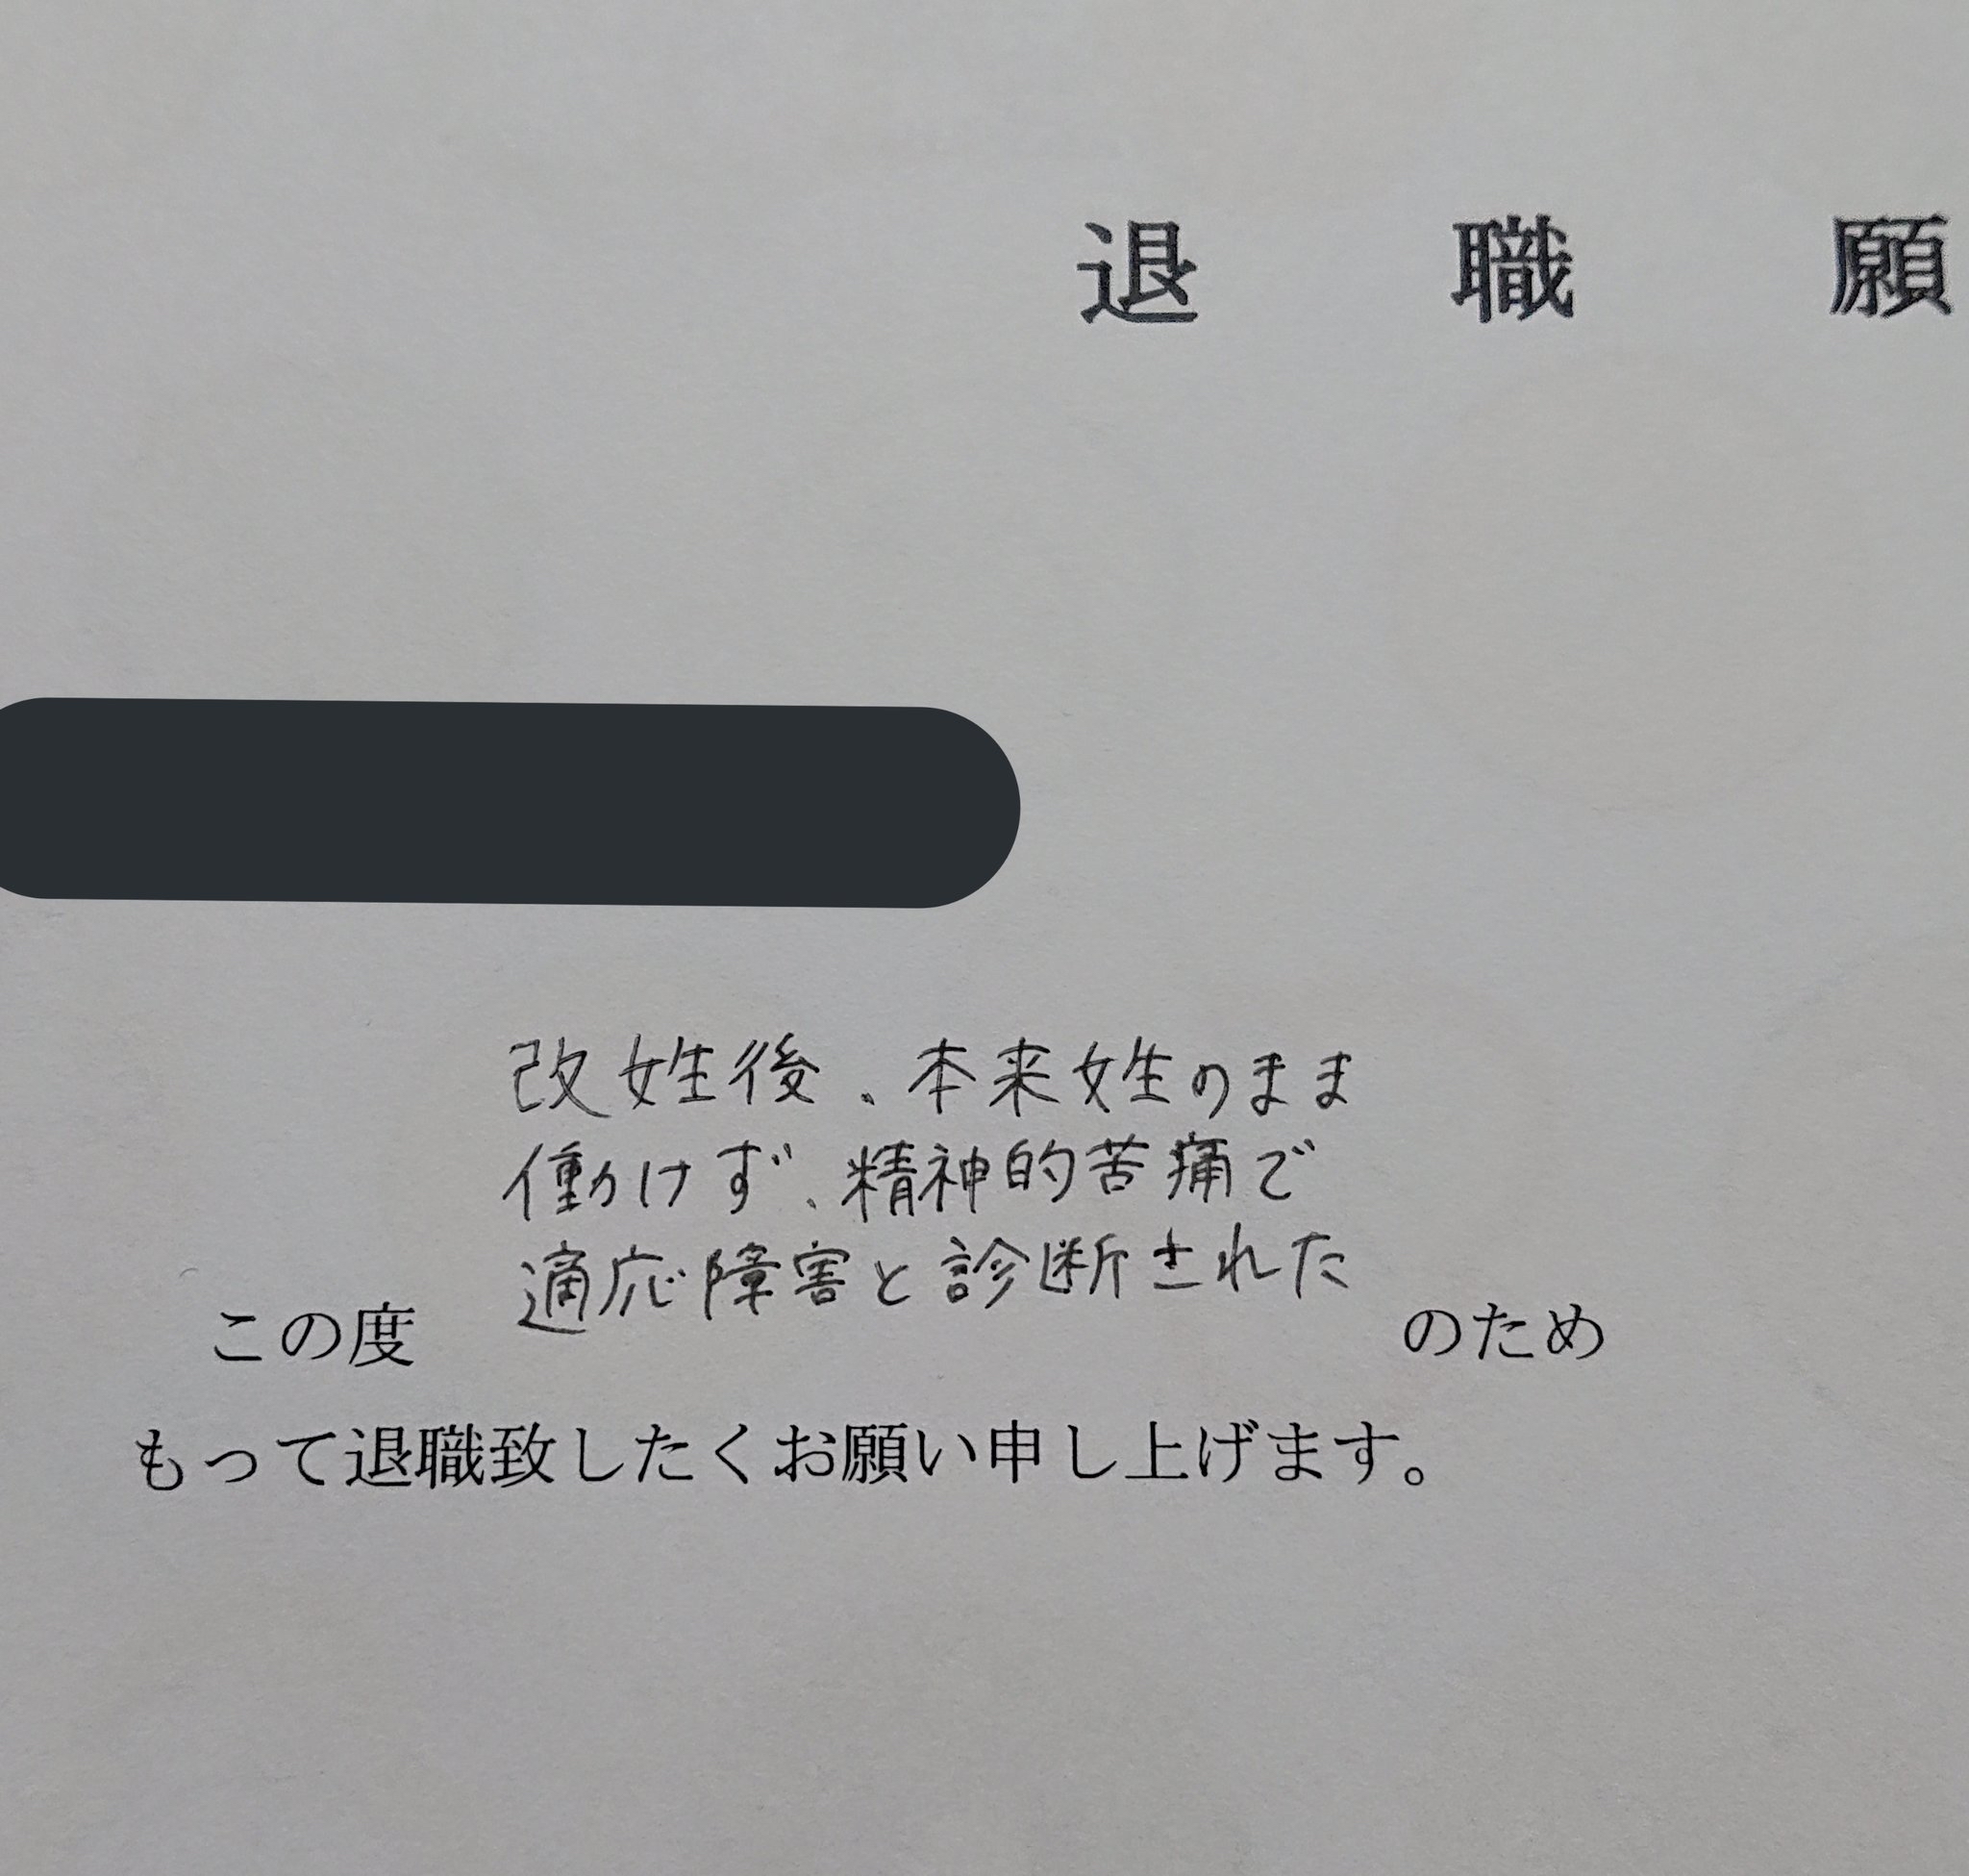 退職願
改姓後、本来姓のまま
働けず、精神的苦痛で
適応障害と診断された
この度 のため
もって退職致したくお願い申し上げます。